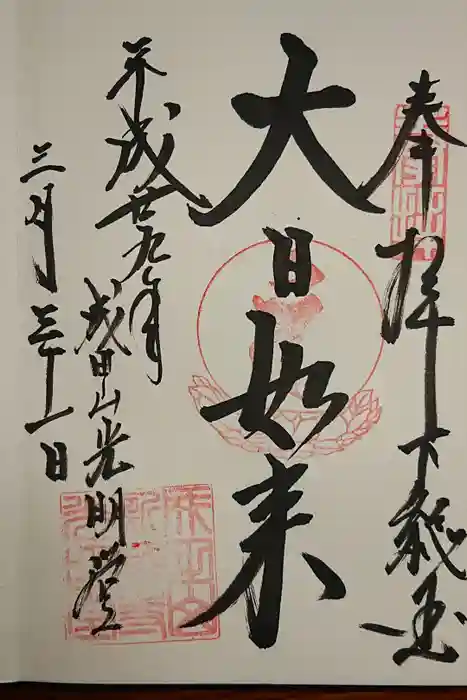 奉拝 下総国
大日如来
平成廿九年
三月三十一日
成田山光明堂